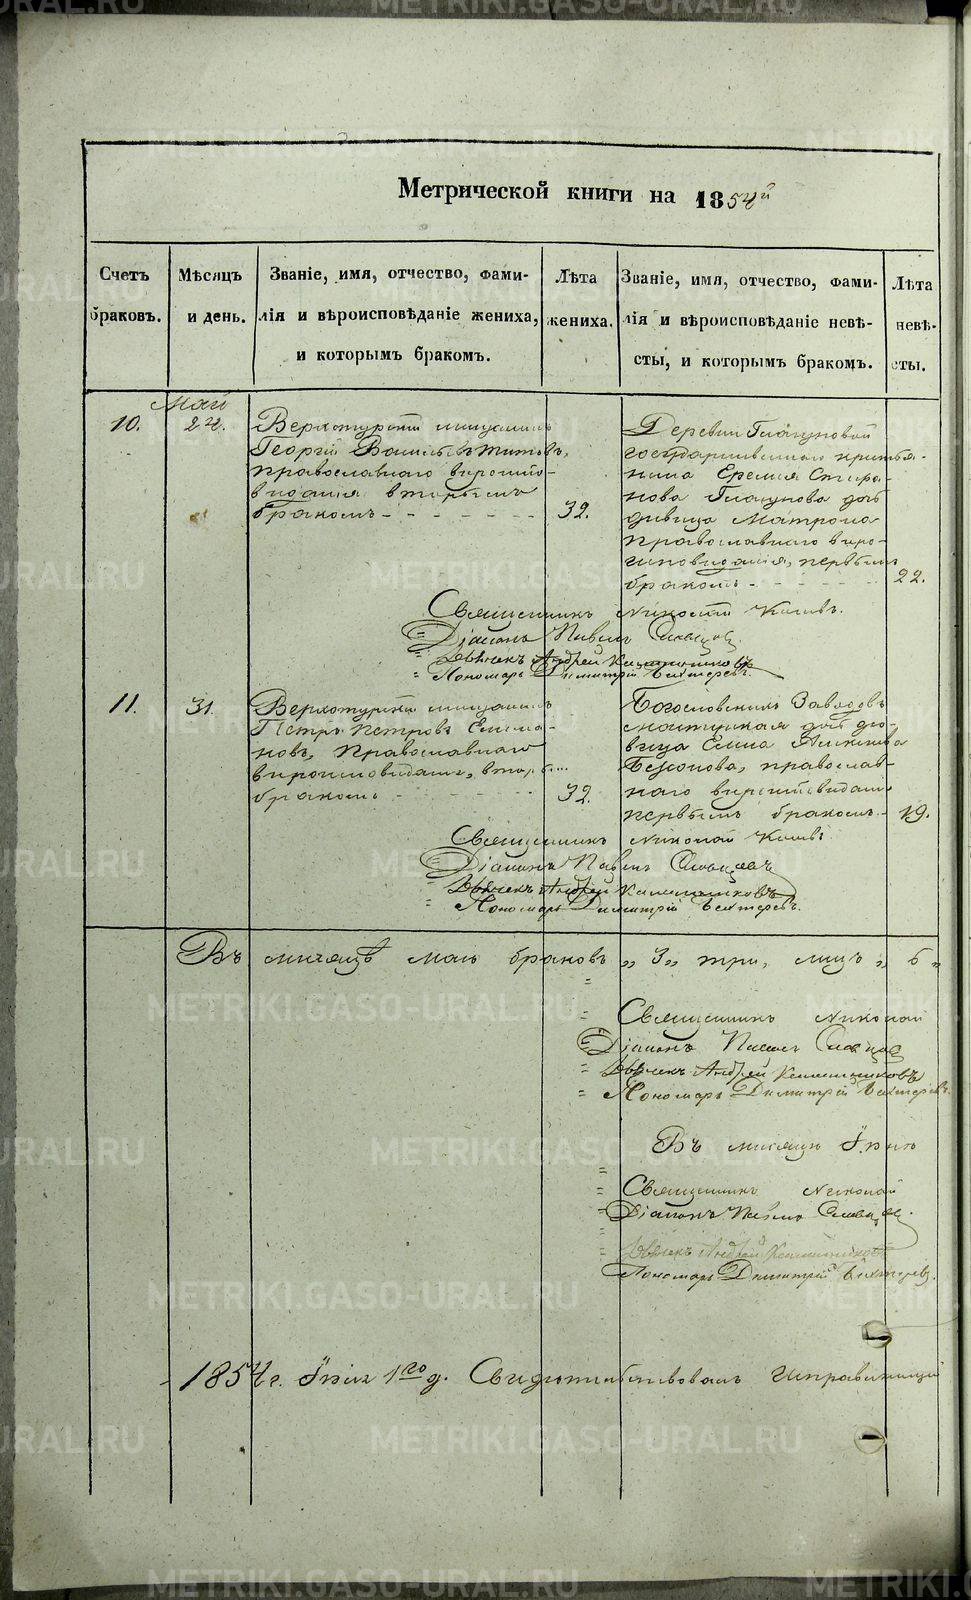 Метрической книги на 1854й
Счетъ браковъ.
Мѣсяцъ и день.
Званіе, имя, отчество, фами-
лія и вѣроисповѣданіе жениха,
и которымъ бракомъ.
Лѣта жениха.
Званіе, имя, отчество, фами-
лія и вѣроисповѣданіе невѣ-
сты, и которымъ бракомъ.
Лѣта невѣ-
сты.
Май
10.
24.
Верхотурскій мещанинъ
Георгій
православнаго вероиспо-
ведания вторымъ
бракомъ
32.
Деревни Глазуновой
государственнаго крестья-
нина Еремия Стефа-
нова Глазунова дочь
девица Матрона
православнаго веро-
исповедания, первымъ
бракомъ
22.
Священникъ Николай
Діаконъ Павелъ Словцовъ
Дьячекъ Андрей Калашниковъ
Пономарь Димитрій Бехтеревъ.
11.
31.
Верхотурский мещанинъ
Петръ Петровъ
новъ, Православнаго
вероисповедания, вторы
бракомъ
32.
Богословскихъ Заводовъ
дочь де-
вица Елена
православ-
наго вероисповедания
первымъ бракомъ
19.
Священникъ Николай
Діаконъ Павелъ Словцовъ
Дьячекъ Андрей Калашниковъ
Пономарь Димитрій Бехтеревъ.
Въ месяце маѣ браковъ „ 3 „ три, лицъ „ 6 „
Священникъ Николай
Діаконъ Павелъ Словцовъ
Дьячекъ Андрей Калашниковъ
Пономарь Димитрій Бехтеревъ.
Въ месяце Іюнѣ
Священникъ Николай
Діаконъ Павелъ Словцовъ.
Дьячекъ Андрей Калашниковъ
Пономарь Димитрій Бехтеревъ.
1854 г. Іюля 1го д. Свидетельствовалъ исправляющій
METRIKI.GASO-URAL.RU